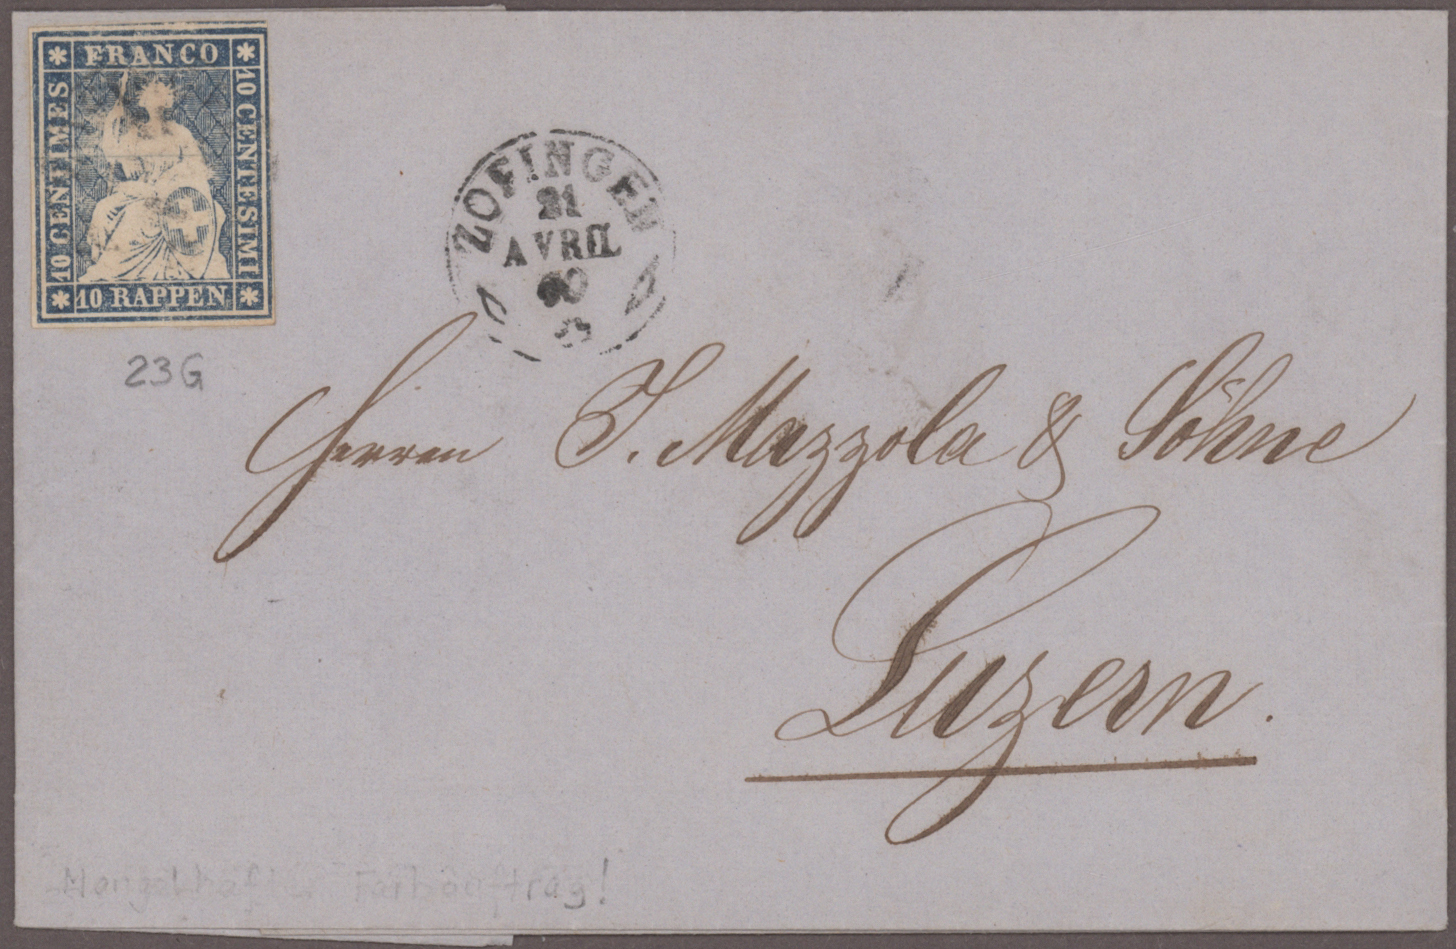 FRANCO
10 CENTIMES
10 CENTESIMI
10 RAPPEN
ZOFINGEN
21
AVRIL
60
23G
Herren J. Mazzola & Söhne
Luzern.
Mangelhafter Farbauftrag!